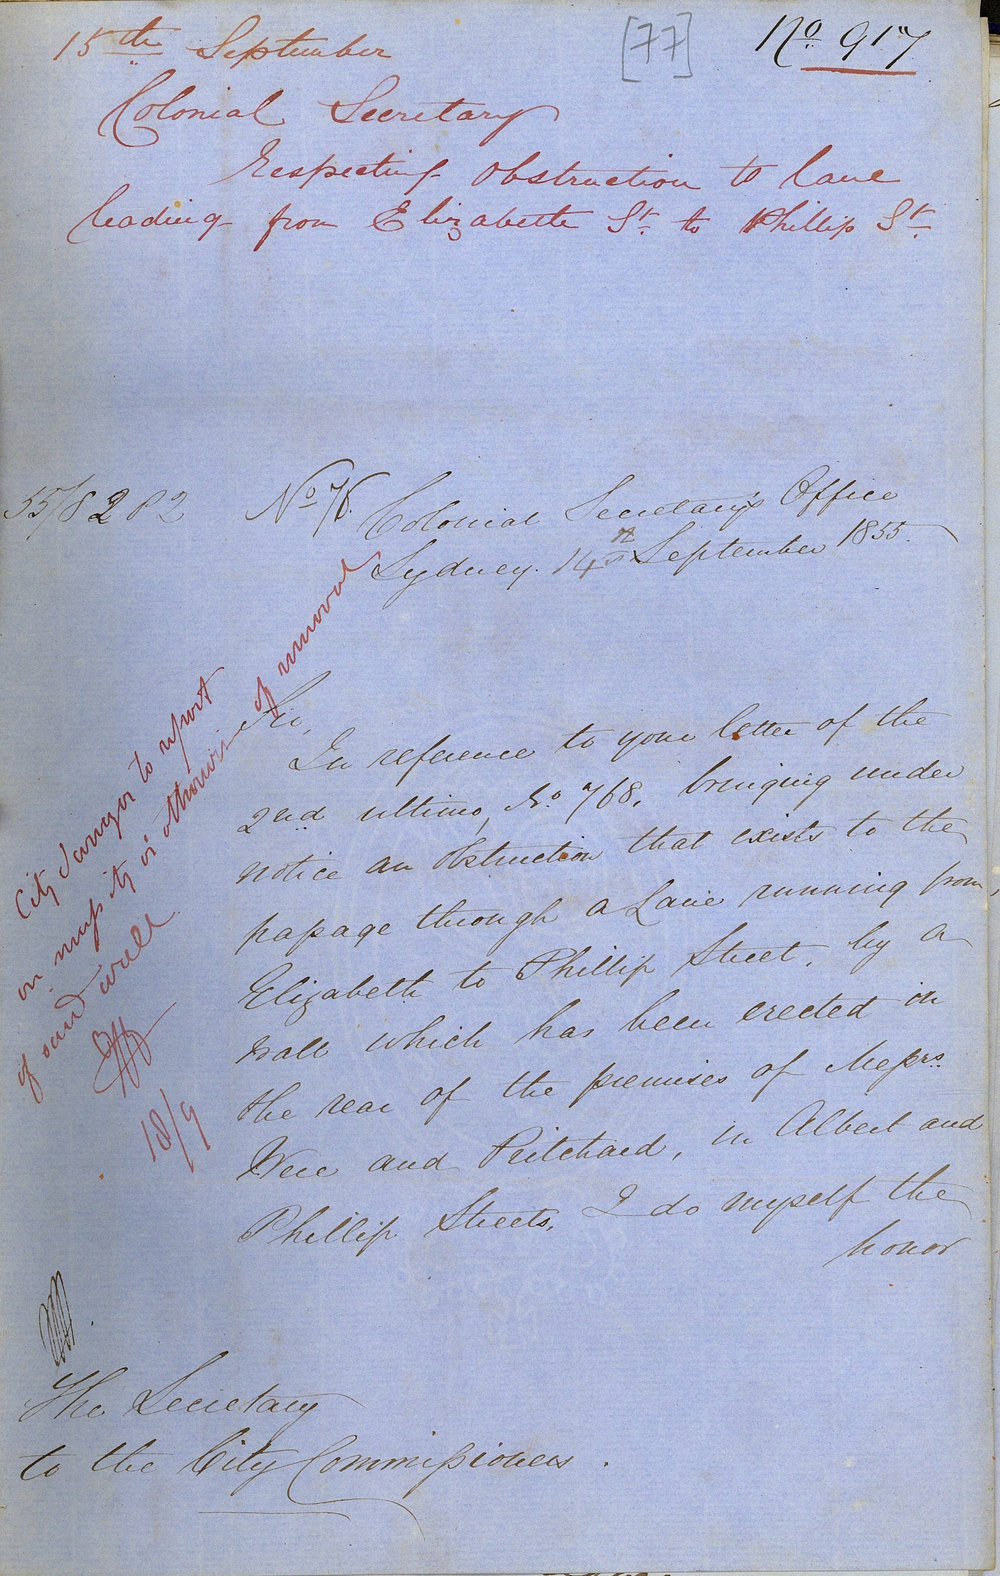 15th September
[77]
No. 917
Colonial Secretary
Respecting obstruction to lane
leading from Elizabeth St. to Phillip St.
55/8282
No. 78.
Colonial Secretary's Office
Sydney. 14th September 1855.
City Surveyor to report
on necessity or otherwise of removal
of said wall
18/9
Sir,
In reference to your letter of the
2nd ultimo, No. 768, bringing under
notice an obstruction that exists to the
passage through a Lane running from
Elizabeth to Phillip Street, by a
Wall which has been erected in
the rear of the premises of Messrs.
Were and Pritchard, in Albert and
Phillip Streets, I do myself the
honor
The Secretary
to the City Commissioners.